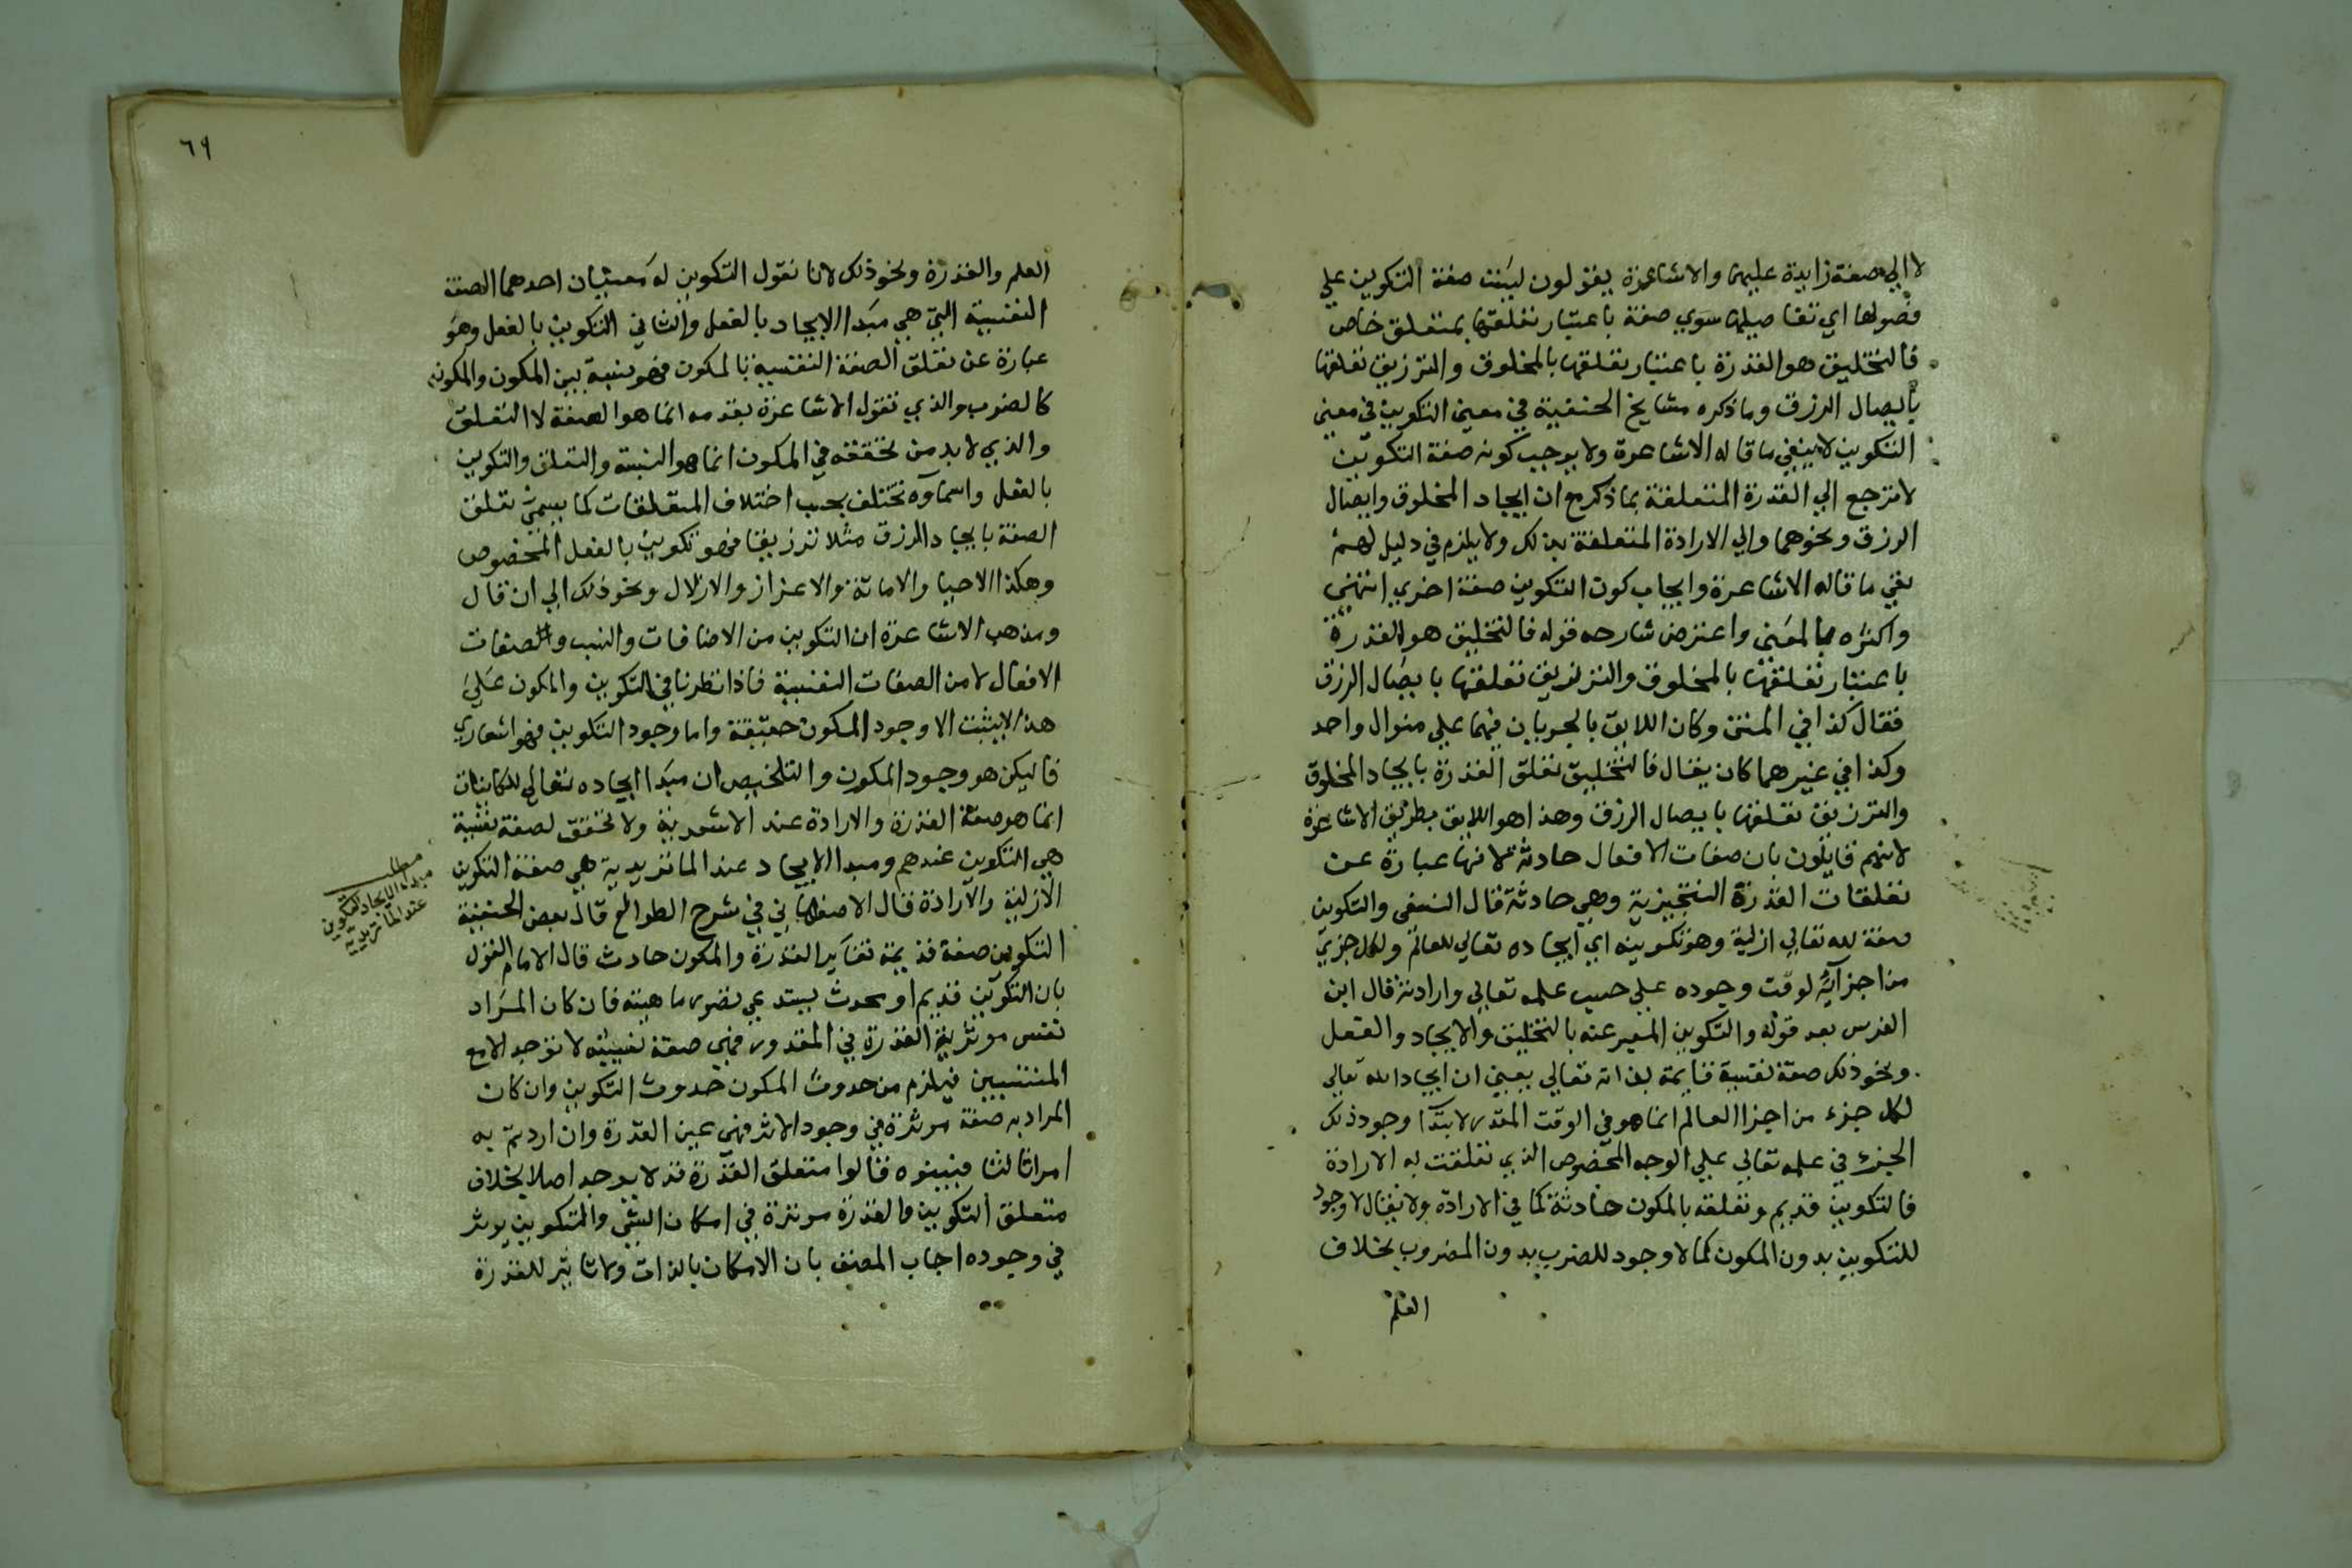 لا الي صفة زايدة عليها والاشاعرة يقولون ليست صفة التكوين علي
فصولها اي تفاصيلها سوي صفة باعتبار تعلقها بمتعلق خاص
فالتخليق هو القدرة باعتبار تعلقها بالمخلوق والترزيق تعلقها
بايصال الرزق وما ذكره مشايخ الحنفية في معني التكوين في معني
التكوين لا ينفي ما قاله الاشاعرة ولا يوجب كونه صفة التكوين
لا ترجع الي القدرة المتعلقة بما ذكر مع ان ايجاد المخلوق وايصال
الرزق ونحوهما والي الارادة المتعلقة بذلك ولا يلزم في دليل لهم
نفي ما قاله الاشاعرة وايجاب كون التكوين صفة اخري انتهي
واكثره بالمعني واعترض شارحه قوله فالتخليق هو القدرة
باعتبار تعلقها بالمخلوق والترزيق تعلقها بايصال الرزق
فقال كذا في المتن وكان اللايق بالجريان فيهما علي منوال واحد
وكذا في غيرهما كان يقال فالتخليق تعلق القدرة بايجاد المخلوق
والترزيق تعلقها بايصال الرزق وهذا هو اللايق بطريق الاشاعرة
لانهم قايلون بان صفات الافعال حادثة لانها عبارة عن
تعلقات القدرة التنجيزية وهي حادثة قال النسفي والتكوين
صفة لله تعالي ازلية وهو تكوينه اي ايجاده تعالي للعالم ولكل جزي
من اجزايه لوقت وجوده علي حسب علمه تعالي وارادته قال ابن
الغرس بعد قوله والتكوين المعبر عنه بالتخليق والايجاد والفعل
ونحو ذلك صفة نفسية قايمة بذاته تعالي بمعني ان ايجاد الله تعالي
لكل جزء من اجزا العالم انما هو في الوقت المقدر لابتدا وجود ذلك
الجزء في علمه تعالي علي الوجه المخصوص الذي تعلقت به الارادة
فالتكوين قديم وتعلقه بالمكون حادثة كما في الارادة ولا يقال لا وجود
للتكوين بدون المكون كما لا وجود للضرب بدون المضروب بخلاف
العلم
٦٩
العلم والقدرة ونحو ذلك لانا نقول التكوين له معنيان احدهما الصفة
النفسية التي هي مبدا الايجاد بالفعل والثاني التكوين بالفعل وهو
عبارة عن تعلق الصفة النفسية بالمكون فهو نسبة بين المكون والمكون
كالضرب والذي تقول الاشاعرة بقدمه انما هو الصفة لا التعلق
والذي لا بد من تحققه في المكون انما هو النسبة والتعلق والتكوين
بالفعل واسماؤه تختلف بحسب اختلاف المتعلقات كما يسمي تعلق
الصفة بايجاد الرزق مثلا ترزيقا فهو تكوين بالفعل المخصوص
وهكذا الاحيا والاماتة والاعزاز والاذلال ونحو ذلك الي ان قال
ومذهب الاشاعرة ان التكوين من الاضافات والنسب والصفات
الافعال لا من الصفات النفسية فاذا نظرنا في التكوين والمكون علي
هذا لا يثبت الا وجود المكون حقيقة واما وجود التكوين فهو اشعاري
فاليكن هو وجود المكون والتلخيص ان مبدا ايجاده تعالي للكاينات
انما هو صفة القدرة والارادة عند الاشعرية ولا تحقق لصفة نفسية
هي التكوين عندهم ومبدا الايجاد عند الماتريدية هي صفة التكوين
الازلية والارادة قال الاصفهاني في شرح الطوالع قال بعض الحنفية
التكوين صفة قديمة تغاير القدرة والمكون حادث قال الامام القول
بان التكوين قديم او محدث يستدعي تصور ماهيته فان كان المراد
نفس موثرية القدرة في المقدور فهي صفة نسبية لا توجد الا مع
المنتسبين فيلزم من حدوث المكون حدوث التكوين وان كان
المراد به صفة موثرة في وجود الاثر فهي عين القدرة وان اردتم به
امرا ثالثا فبينوه فقالوا متعلق القدرة قد لا يوجد اصلا بخلاف
متعلق التكوين والقدرة موثرة في امكان الشي والتكوين يوثر
في وجوده اجاب المصنف بان الامكان بالذات ولا تاثير للقدرة
مطلب
مبدا الايجاد التكوين
عند الماتريدية